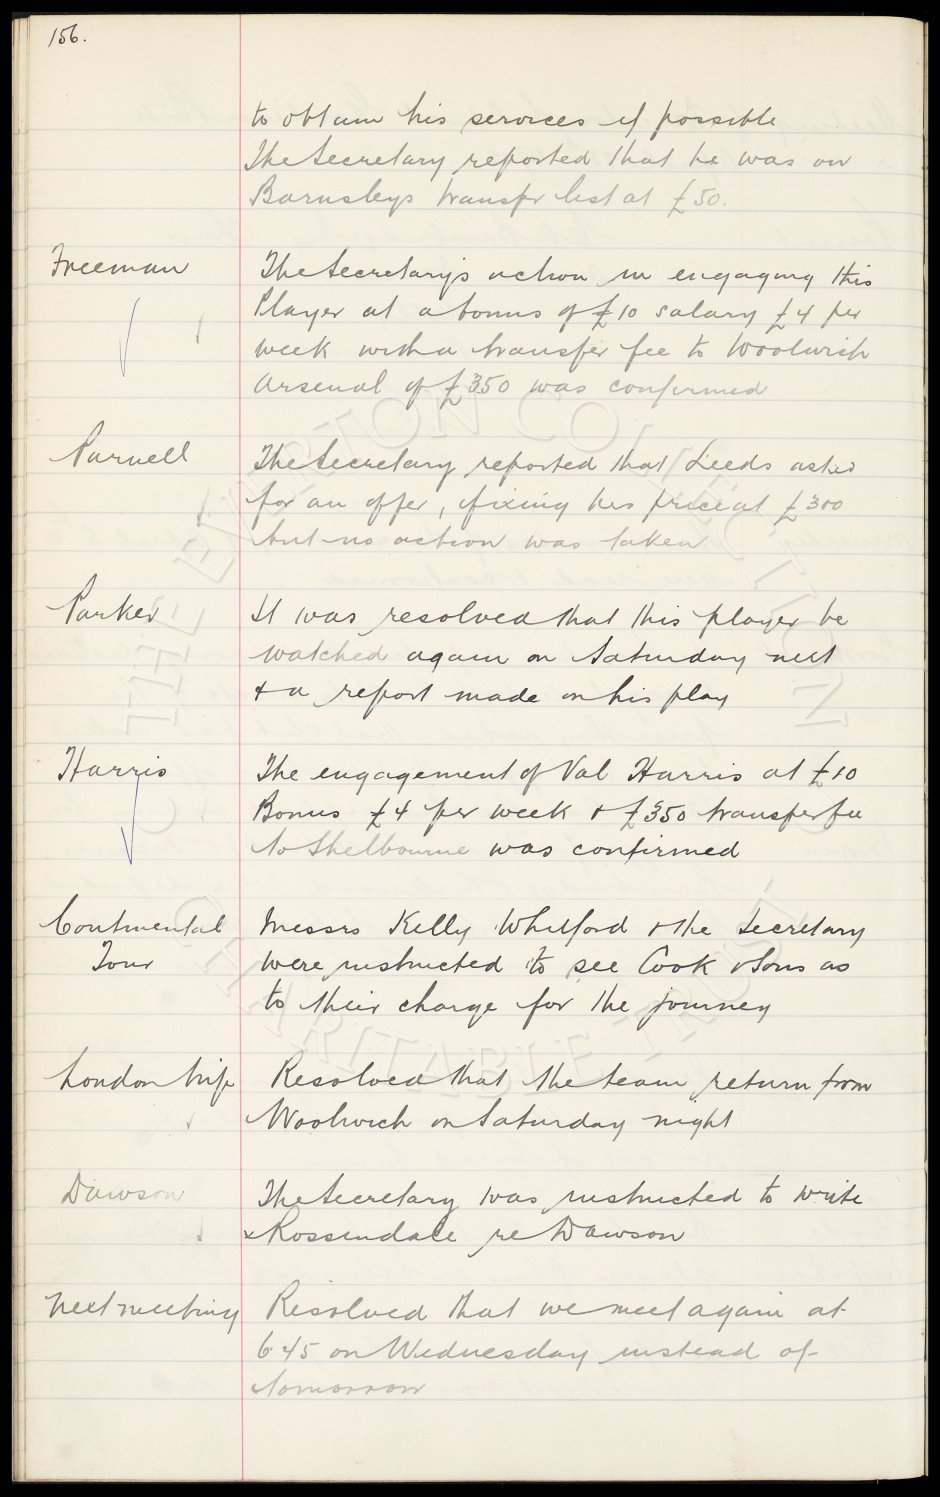 156.
to obtain his services if possible
The Secretary reported that he was on
Barnsleys transfer list at £50.
Freeman The Secretary's action in engaging this
Player at a bonus of £10 salary £4 per
week with a transfer fee to Woolwich
Arsenal of £350 was confirmed
Parnell The Secretary reported that Leeds asked
for an offer, fixing his price at £300
but no action was taken
Parker It was resolved that this player be
watched again on Saturday next
& a report made on his play
Harris The engagement of Val Harris at £10
Bonus £4 per week & £350 transfer fee
to Shelbourne was confirmed
Continental Messrs Kelly Whitford & the Secretary
Tour were instructed to see Cook & Sons as
to their charge for the journey
London trip Resolved that the team return from
Woolwich on Saturday night
Dawson The Secretary was instructed to write
Rossendale re Dawson
Next meeting Resolved that we meet again at
6.45 on Wednesday instead of
tomorrow